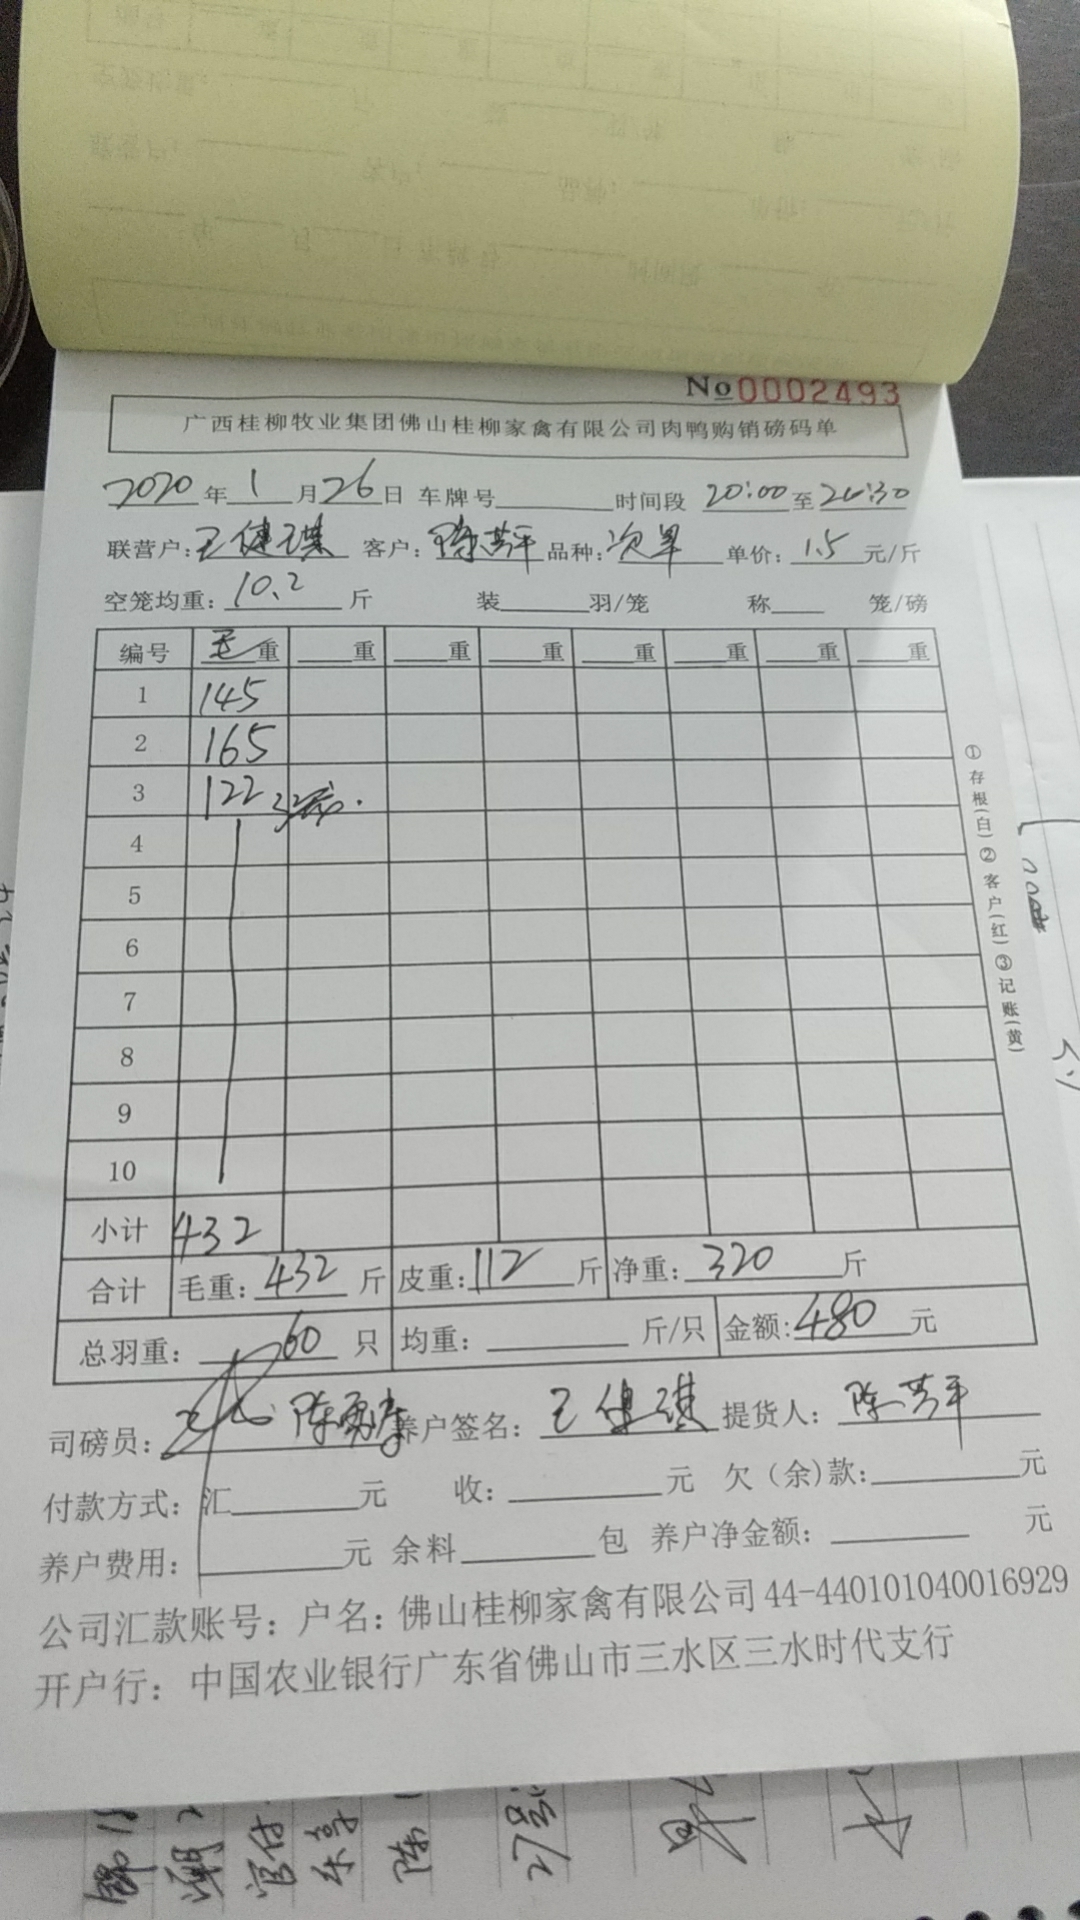 No 0002493
广西桂柳牧业集团佛山桂柳家禽有限公司肉鸭购销磅码单
2020年1月26日 车牌号 时间段 20:00至20:30
联营户:王健琪 客户:陈芳平 品种:次单 单价:1.5元/斤
空笼均重:10.2斤 装 羽/笼 称 笼/磅
编号 毛重 重 重 重 重 重 重 重
1 145
2 165
3 122
4
5
6
7
8
9
10
小计 432
合计 毛重:432斤 皮重:112斤 净重:320斤
总羽重:60只 均重: 斤/只 金额:480元
司磅员: 养户签名:王健琪 提货人:陈芳平
付款方式:汇 元 收: 元 欠(余)款: 元
养户费用: 元 余料 包 养户净金额: 元
公司汇款账号:户名:佛山桂柳家禽有限公司44-440101040016929
开户行:中国农业银行广东省佛山市三水区三水时代支行
①存根(白)②客户(红)③记账(黄)